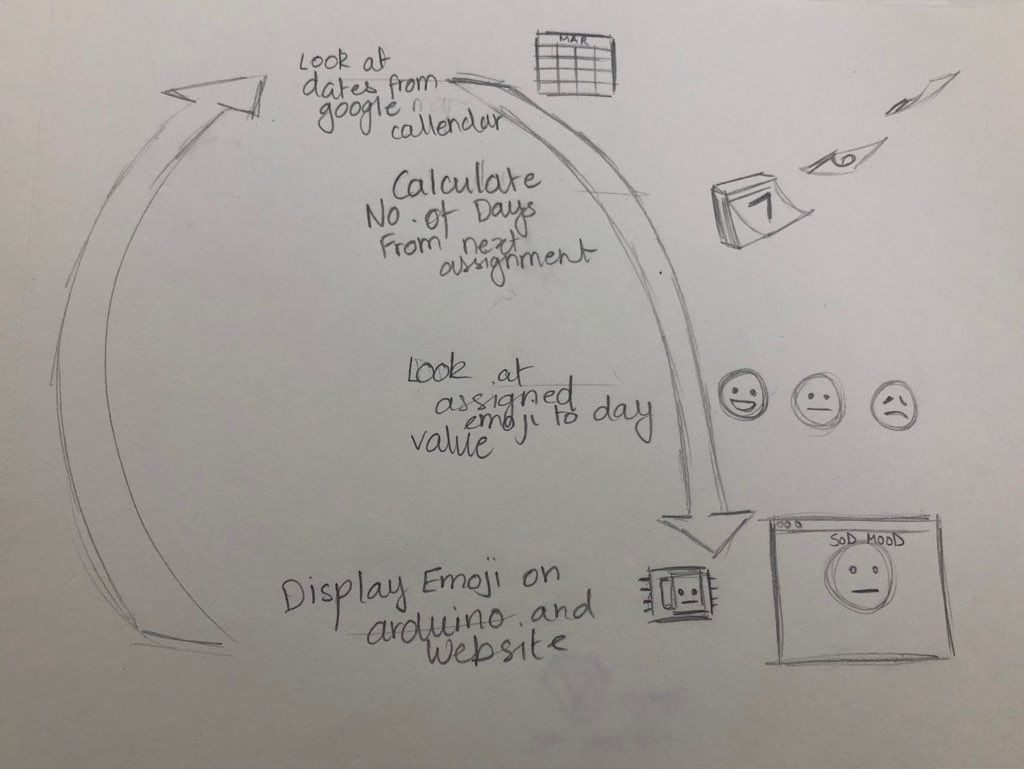 MAR
Look at
dates from
google
callendar
Calculate
No. of Days
From next
assignment
6
7
Look at
assigned
emoji to day
value
SOD MOOD
Display Emoji on
arduino and
website